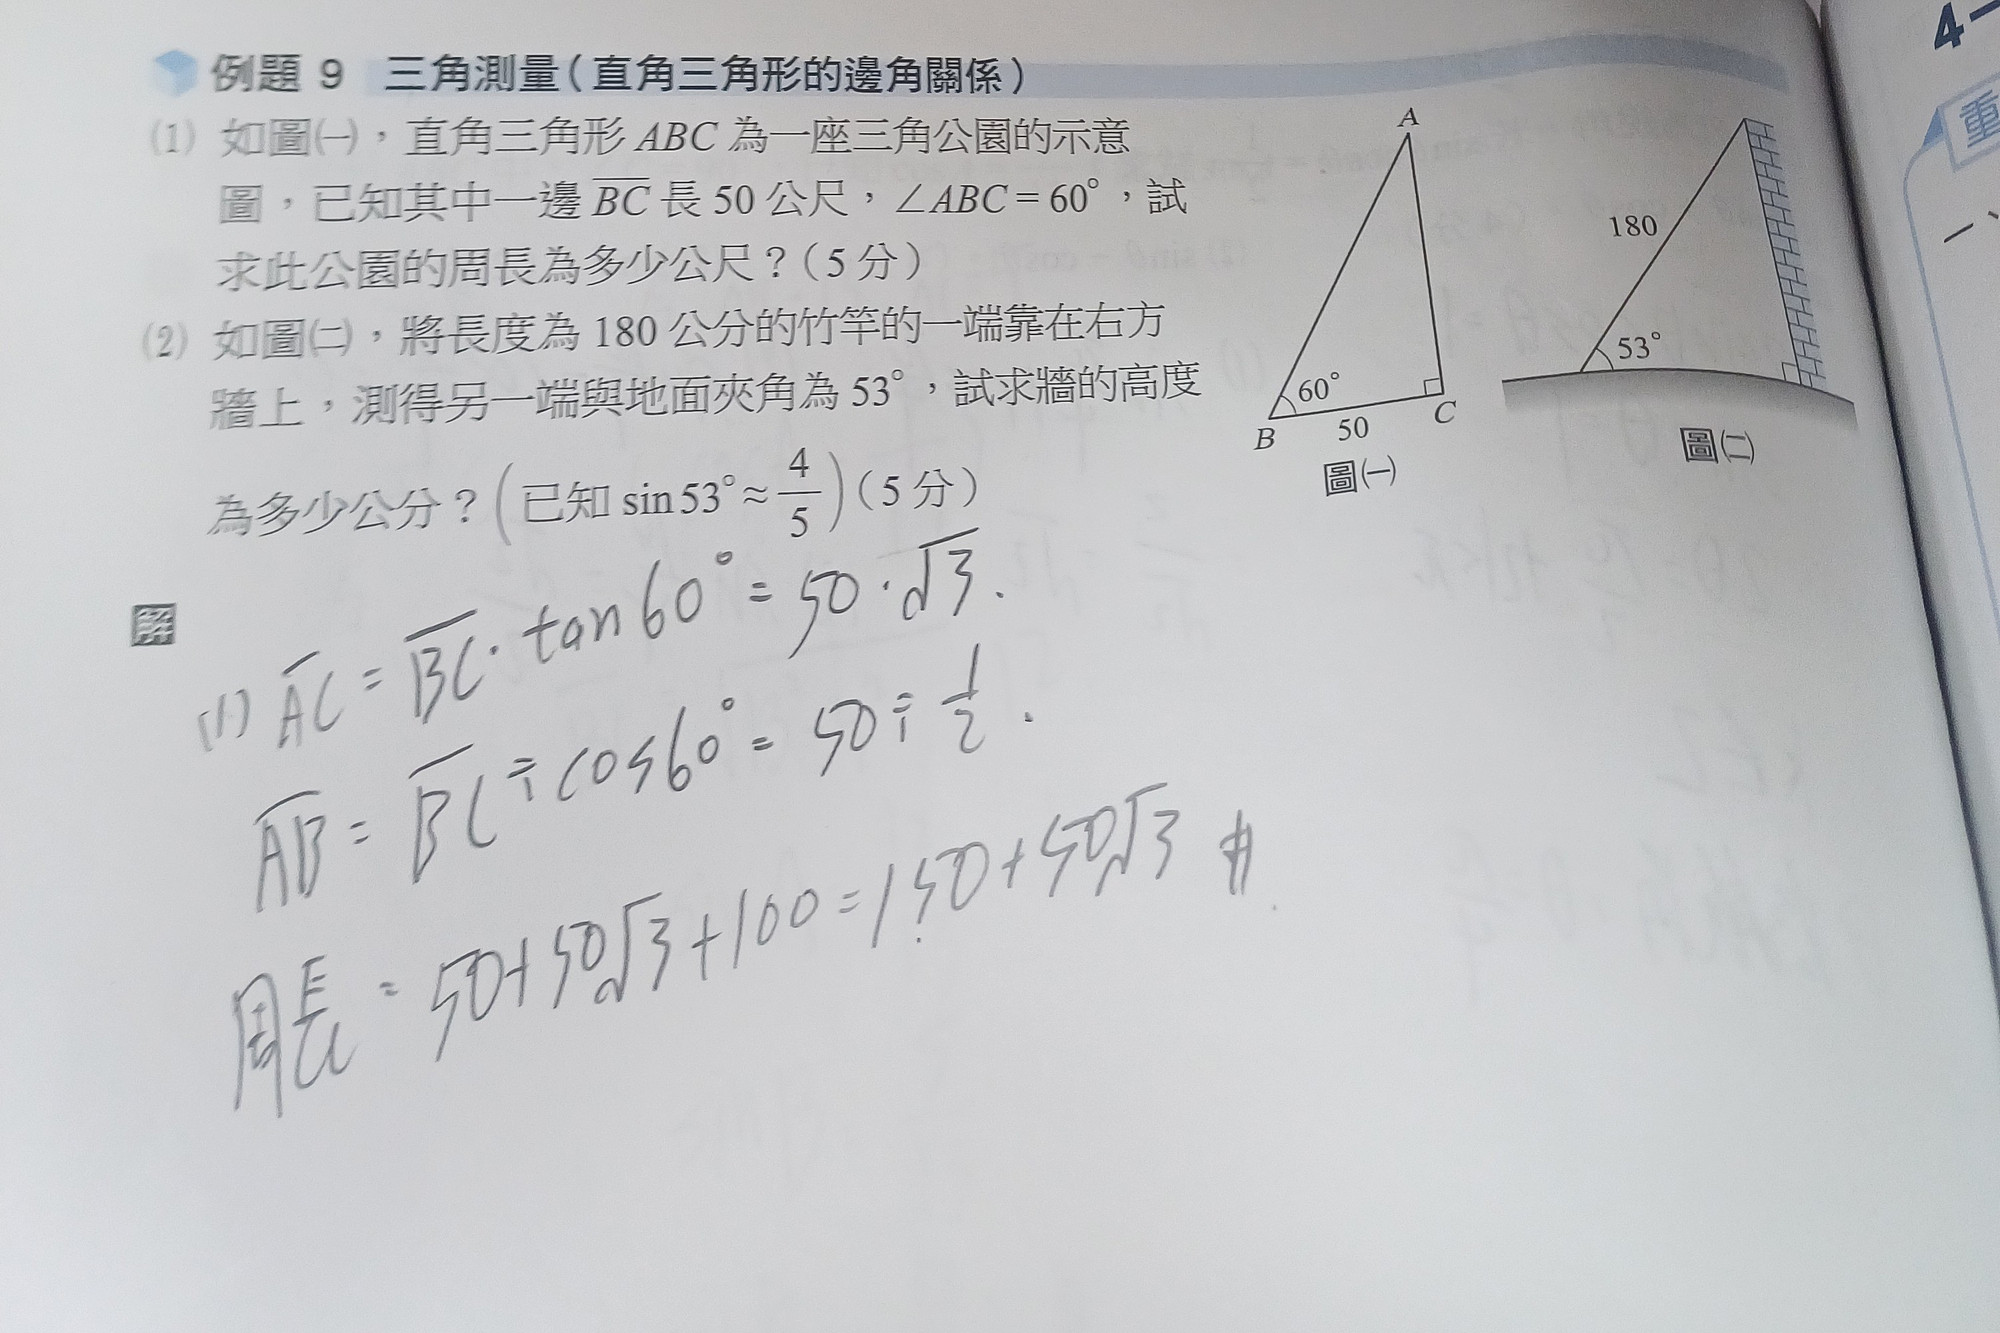 例題 9 三角測量(直角三角形的邊角關係)
(1) 如圖㈠,直角三角形 ABC 為一座三角公園的示意
圖,已知其中一邊 \overline{BC} 長 50 公尺,∠ABC = 60°,試
求此公園的周長為多少公尺?(5 分)
(2) 如圖㈡,將長度為 180 公分的竹竿的一端靠在右方
牆上,測得另一端與地面夾角為 53°,試求牆的高度
為多少公分?(已知 sin 53° ≈ 4/5)(5 分)
A
60°
B
50
C
圖㈠
180
53°
圖㈡
解
(1) \overline{AC} = \overline{BC} · tan 60° = 50 · √3 .
\overline{AB} = \overline{BC} ÷ cos 60° = 50 ÷ 1/2 .
周長 = 50 + 50√3 + 100 = 150 + 50√3 #
4-
重
一、